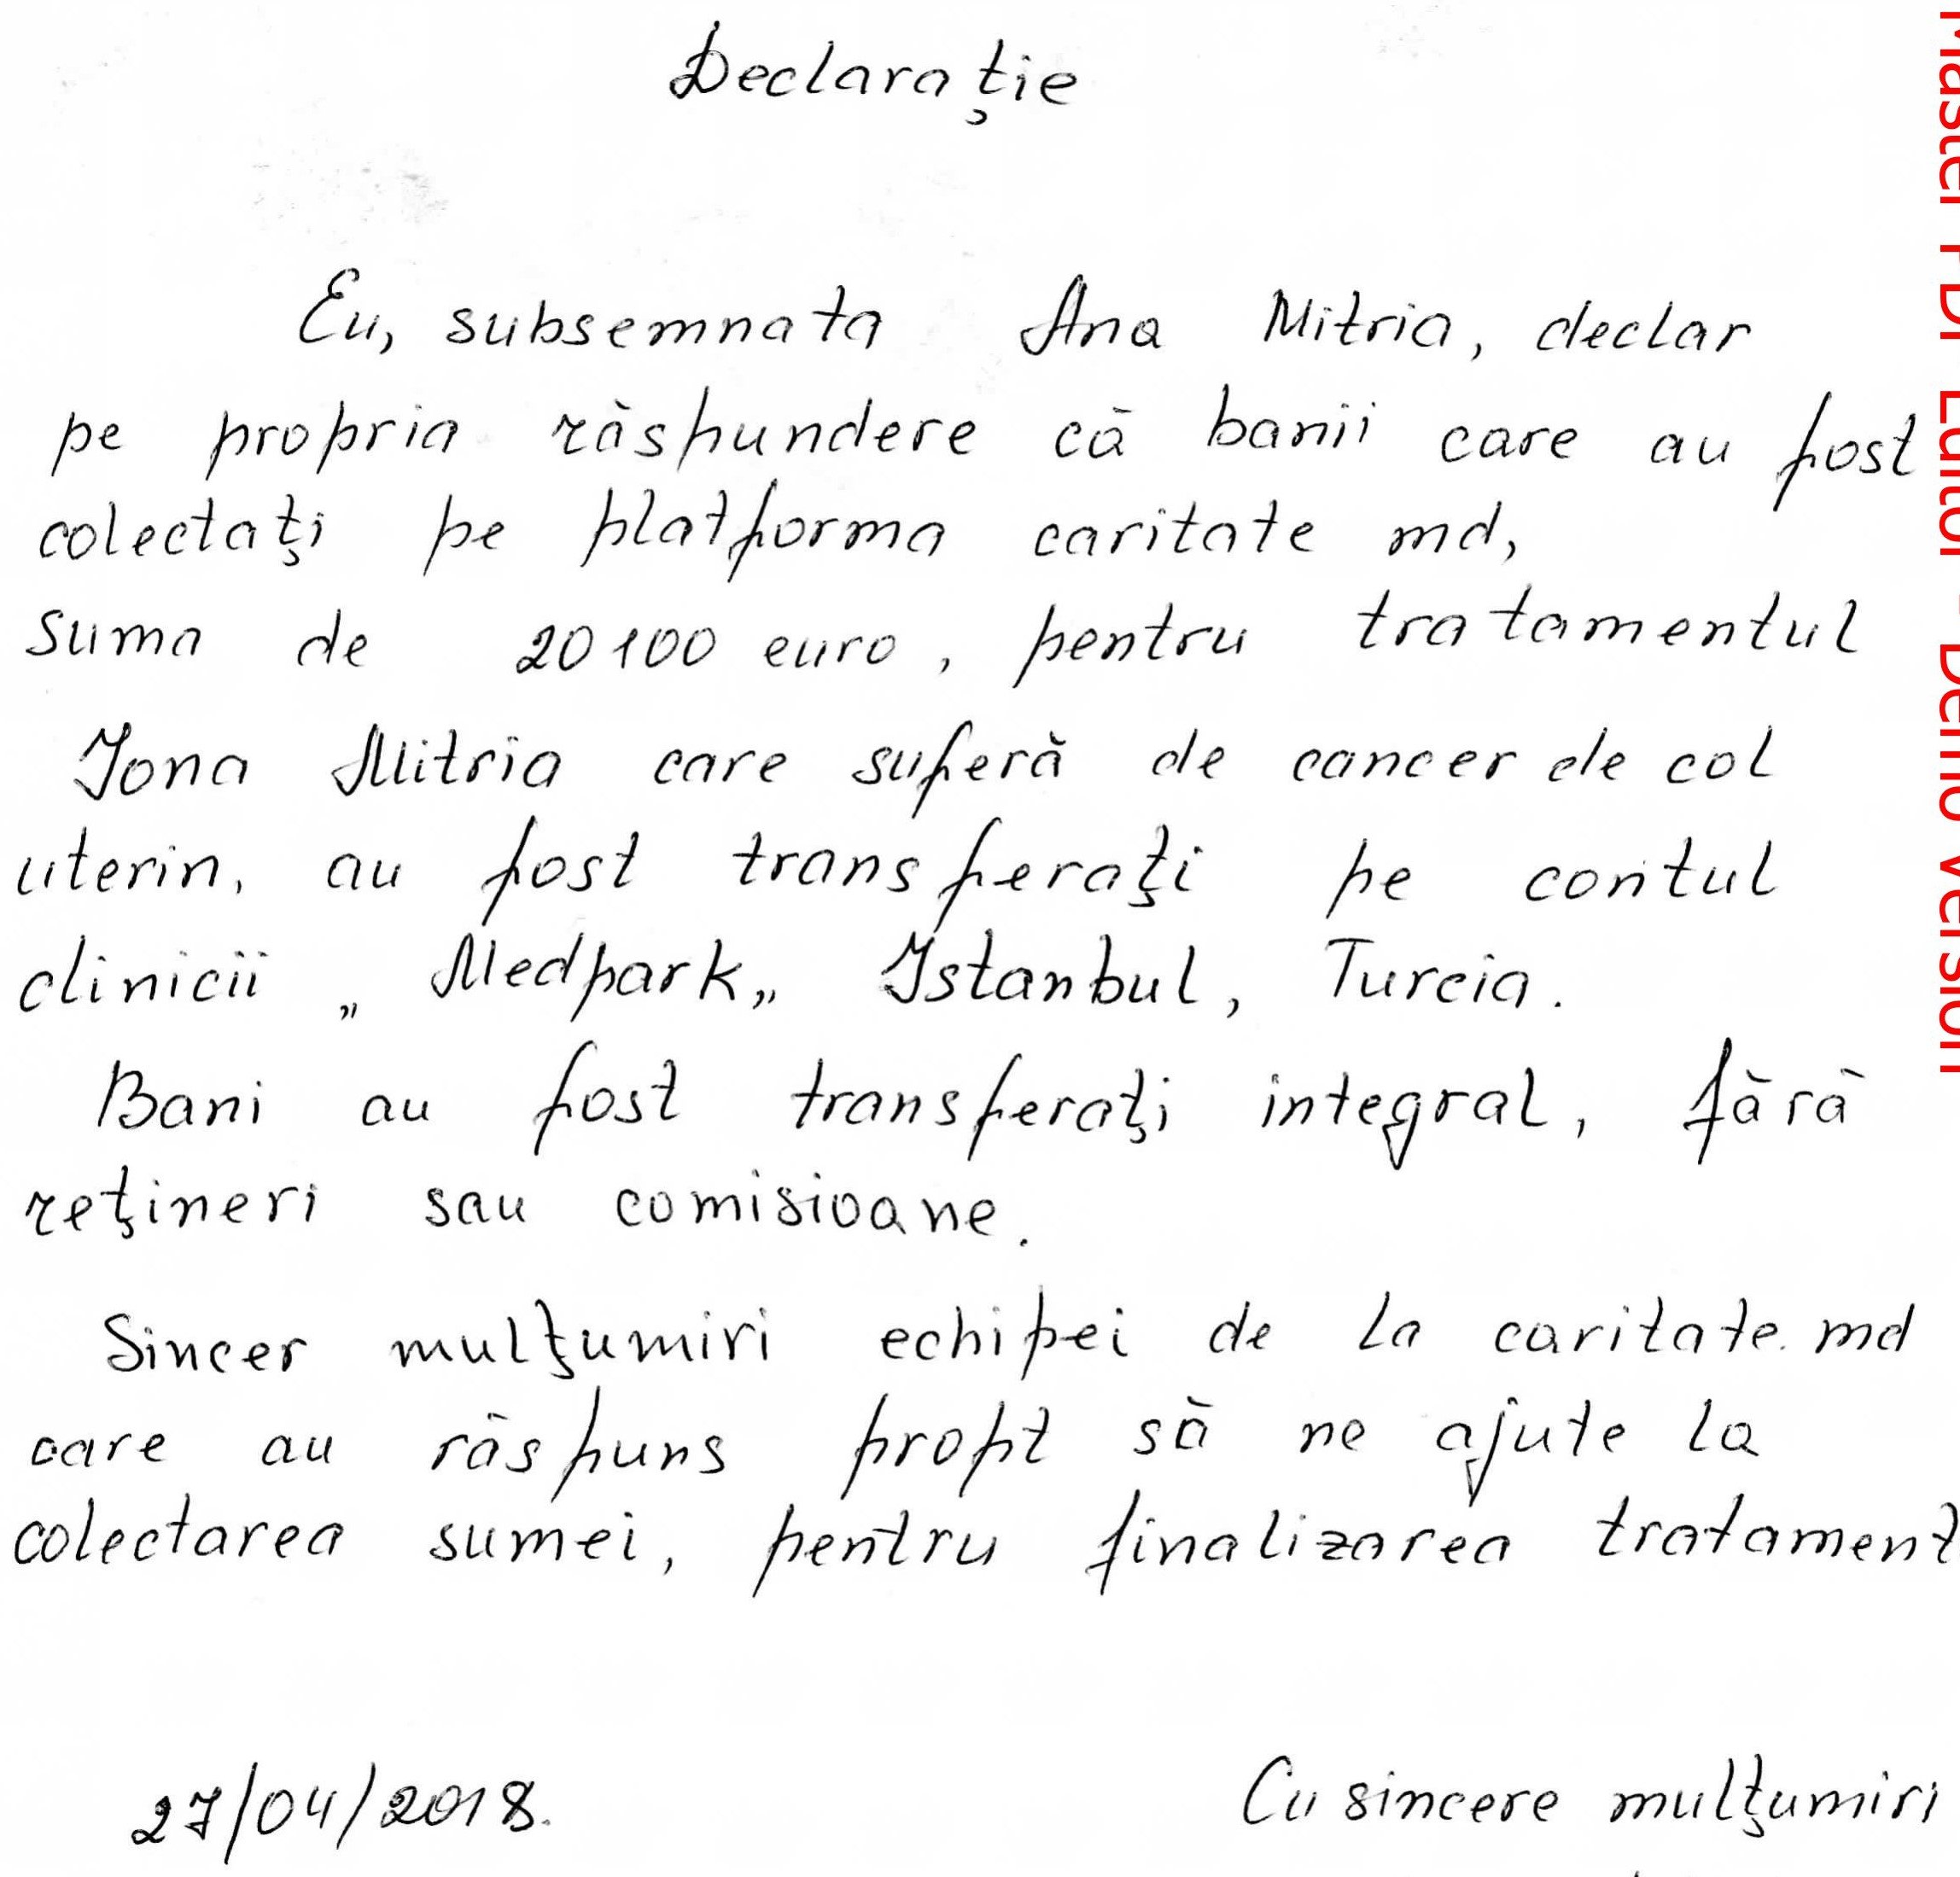 Declarație
Eu, subsemnata Ana Mitria, declar
pe propria răspundere că banii care au fost
colectați pe platforma caritate md,
suma de 20100 euro, pentru tratamentul
Iona Mitria care suferă de cancer de col
uterin, au fost transferați pe contul
clinicii „Medpark„ Istanbul, Turcia.
Bani au fost transferați integral, fără
rețineri sau comisioane.
Sincer mulțumiri echipei de la caritate.md
care au răspuns propt să ne ajute la
colectarea sumei, pentru finalizarea tratament
27/04/2018. Cu sincere mulțumiri
Master PDF Editor - Demo Version